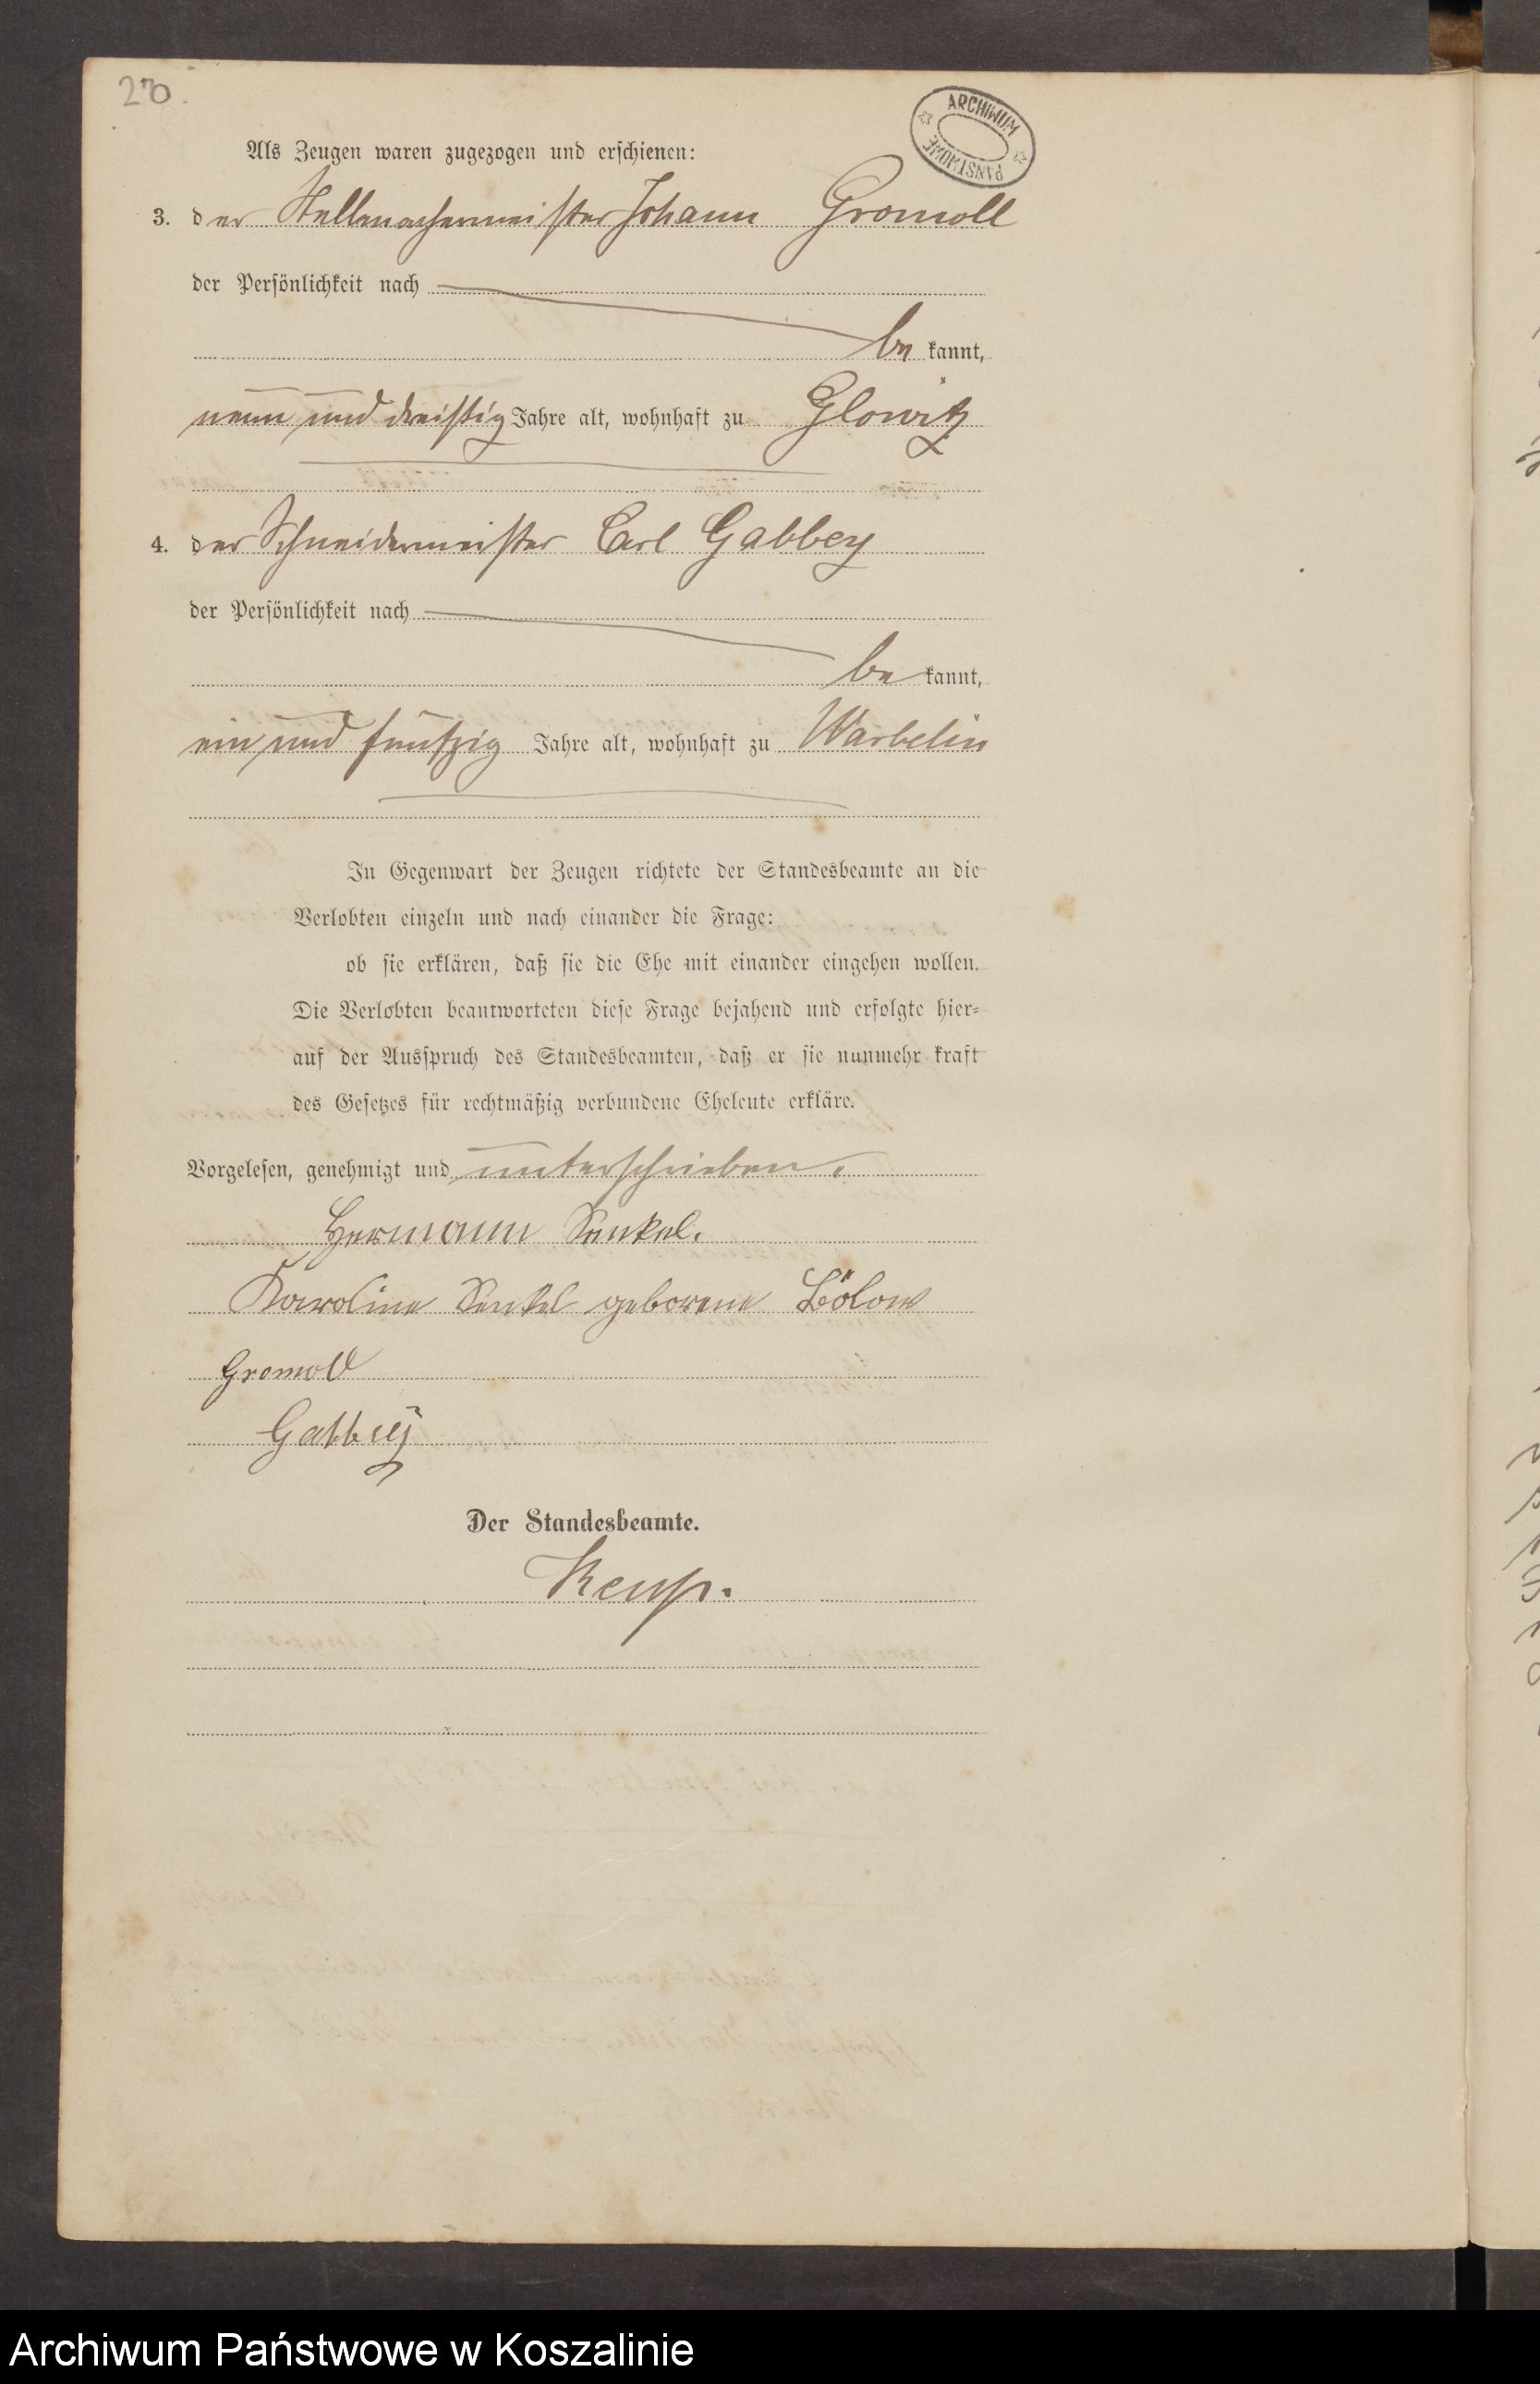 270.
ARCHIWUM PAŃSTWOWE
Als Zeugen waren zugezogen und erschienen:
3. der Stellmachermeister Johann Gromoll
der Persönlichkeit nach
be kannt,
neun und dreißig Jahre alt, wohnhaft zu Glowitz
4. der Schneidermeister Carl Gabbey
der Persönlichkeit nach
be kannt,
ein und fünfzig Jahre alt, wohnhaft zu Warbelin
In Gegenwart der Zeugen richtete der Standesbeamte an die
Verlobten einzeln und nach einander die Frage:
ob sie erklären, daß sie die Ehe mit einander eingehen wollen.
Die Verlobten beantworteten diese Frage bejahend und erfolgte hier=
auf der Ausspruch des Standesbeamten, daß er sie nunmehr kraft
des Gesetzes für rechtmäßig verbundene Eheleute erkläre.
Vorgelesen, genehmigt und unterschrieben.
Hermann Senkel.
Karoline Senkel geborene Bölow
Gromoll
Gabbey
Der Standesbeamte.
Archiwum Państwowe w Koszalinie